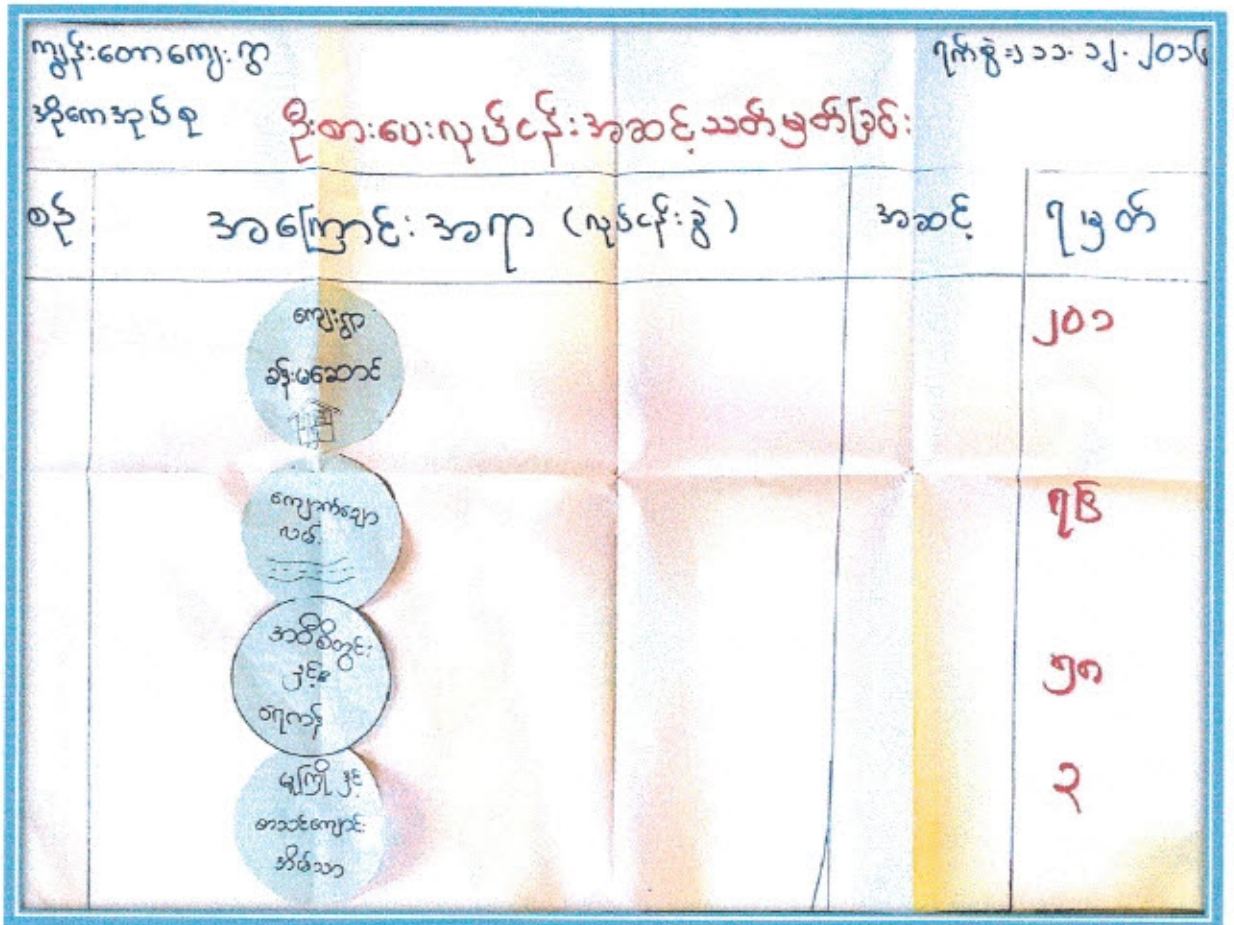 ကျွန်းတောကျေးရွာ
ရက်စွဲ၊ ၁၁.၁၂.၂၀၁၆
အိုကေအုပ်စု
ဦးစားပေးလုပ်ငန်းအဆင့်သတ်မှတ်ခြင်း
စဉ် အကြောင်းအရာ (လုပ်ငန်းခွဲ) အဆင့် ရမှတ်
ကျေးရွာ
ခန်းမဆောင်
၂၀၁
ကျောက်ချော
လမ်း
အဝီစိတွင်း
နှင့်
ရေကန်
၅၈
မူကြို နှင့်
စာသင်ကျောင်း
အိမ်သာ
၃